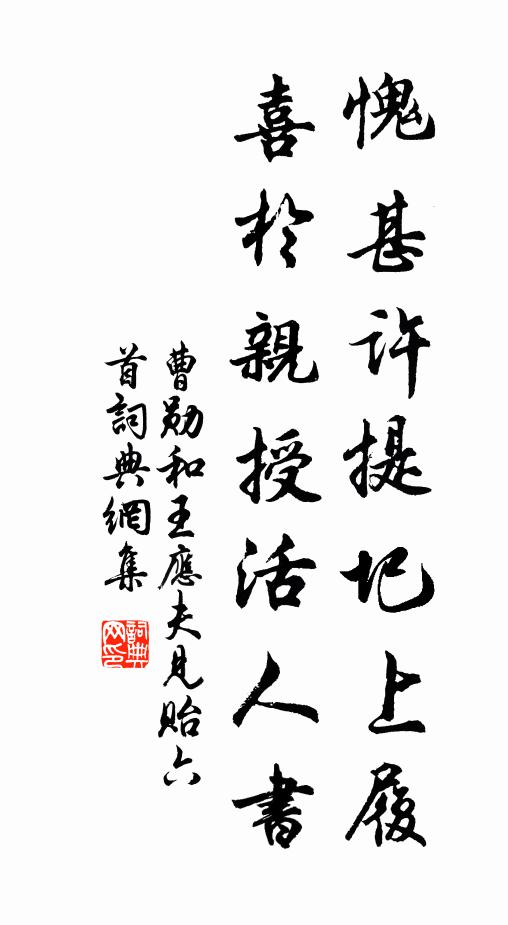 愧甚許提圯上履
喜於親授活人書
曹勛和王應夫見貽六
首詞典網集
詞典網印